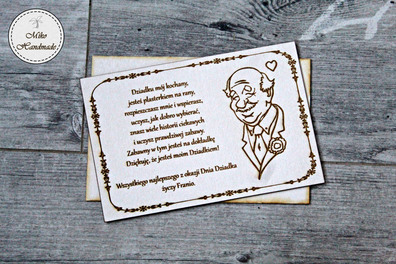 Miko
Handmade
Dziadku mój kochany,
jesteś plasterkiem na rany,
rozpieszczasz mnie i wspierasz,
uczysz, jak dobro wybierać,
znasz wiele historii ciekawych
i uczysz prawdziwej zabawy.
Zabawny w tym jesteś na dokładkę
Dziękuję, że jesteś moim Dziadkiem!
Wszystkiego najlepszego z okazji Dnia Dziadka
życzy Franio.